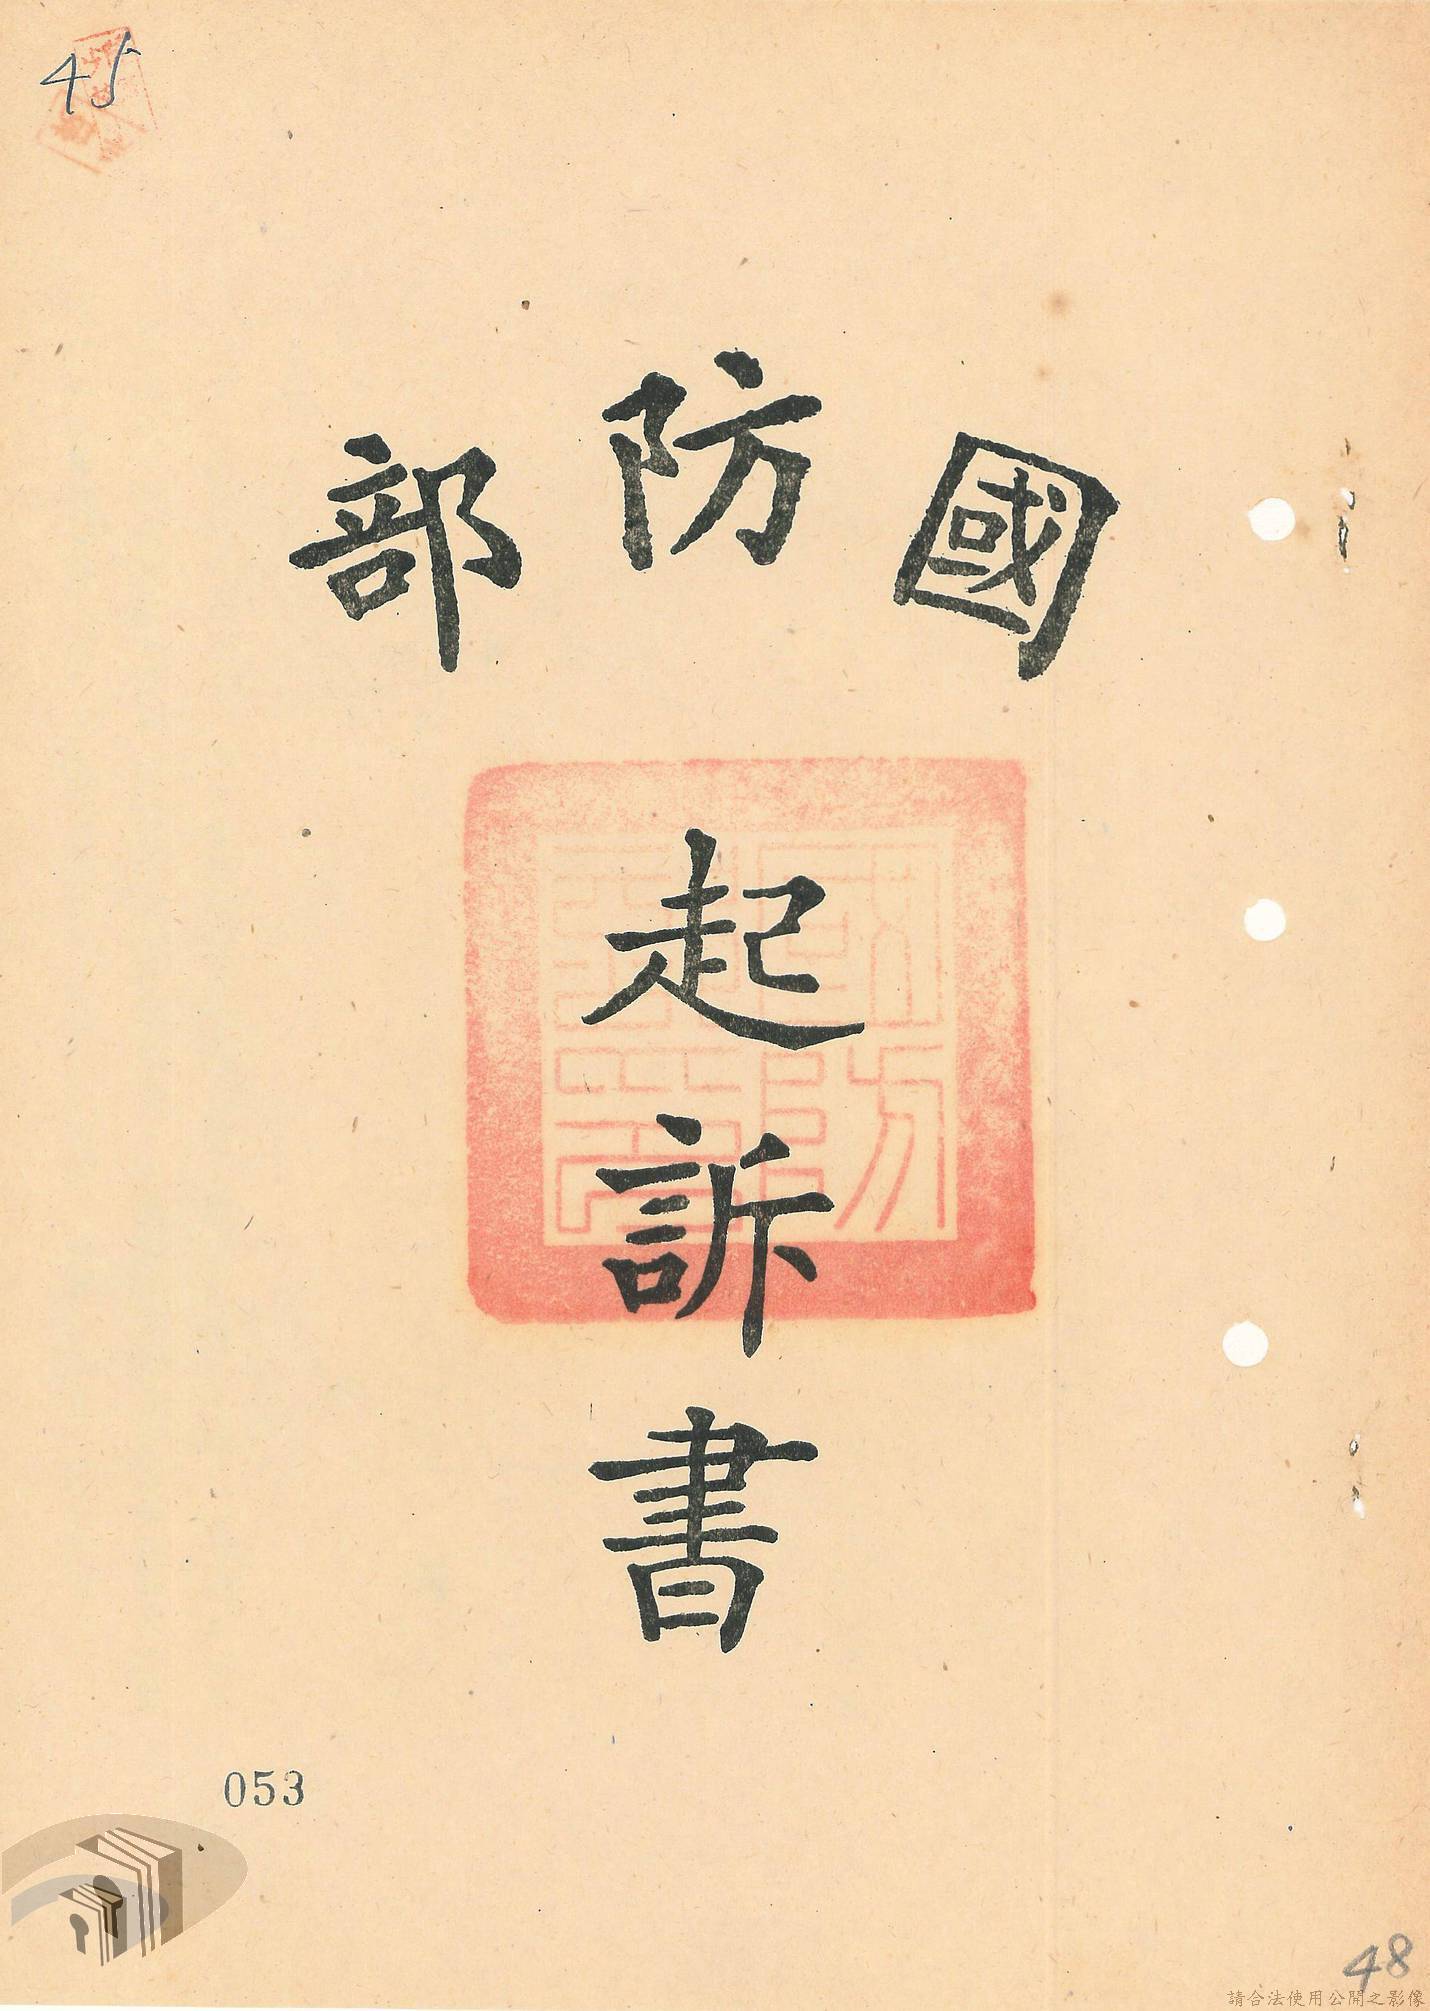 45
國防部
起訴書
053
48
請合法使用公開之影像